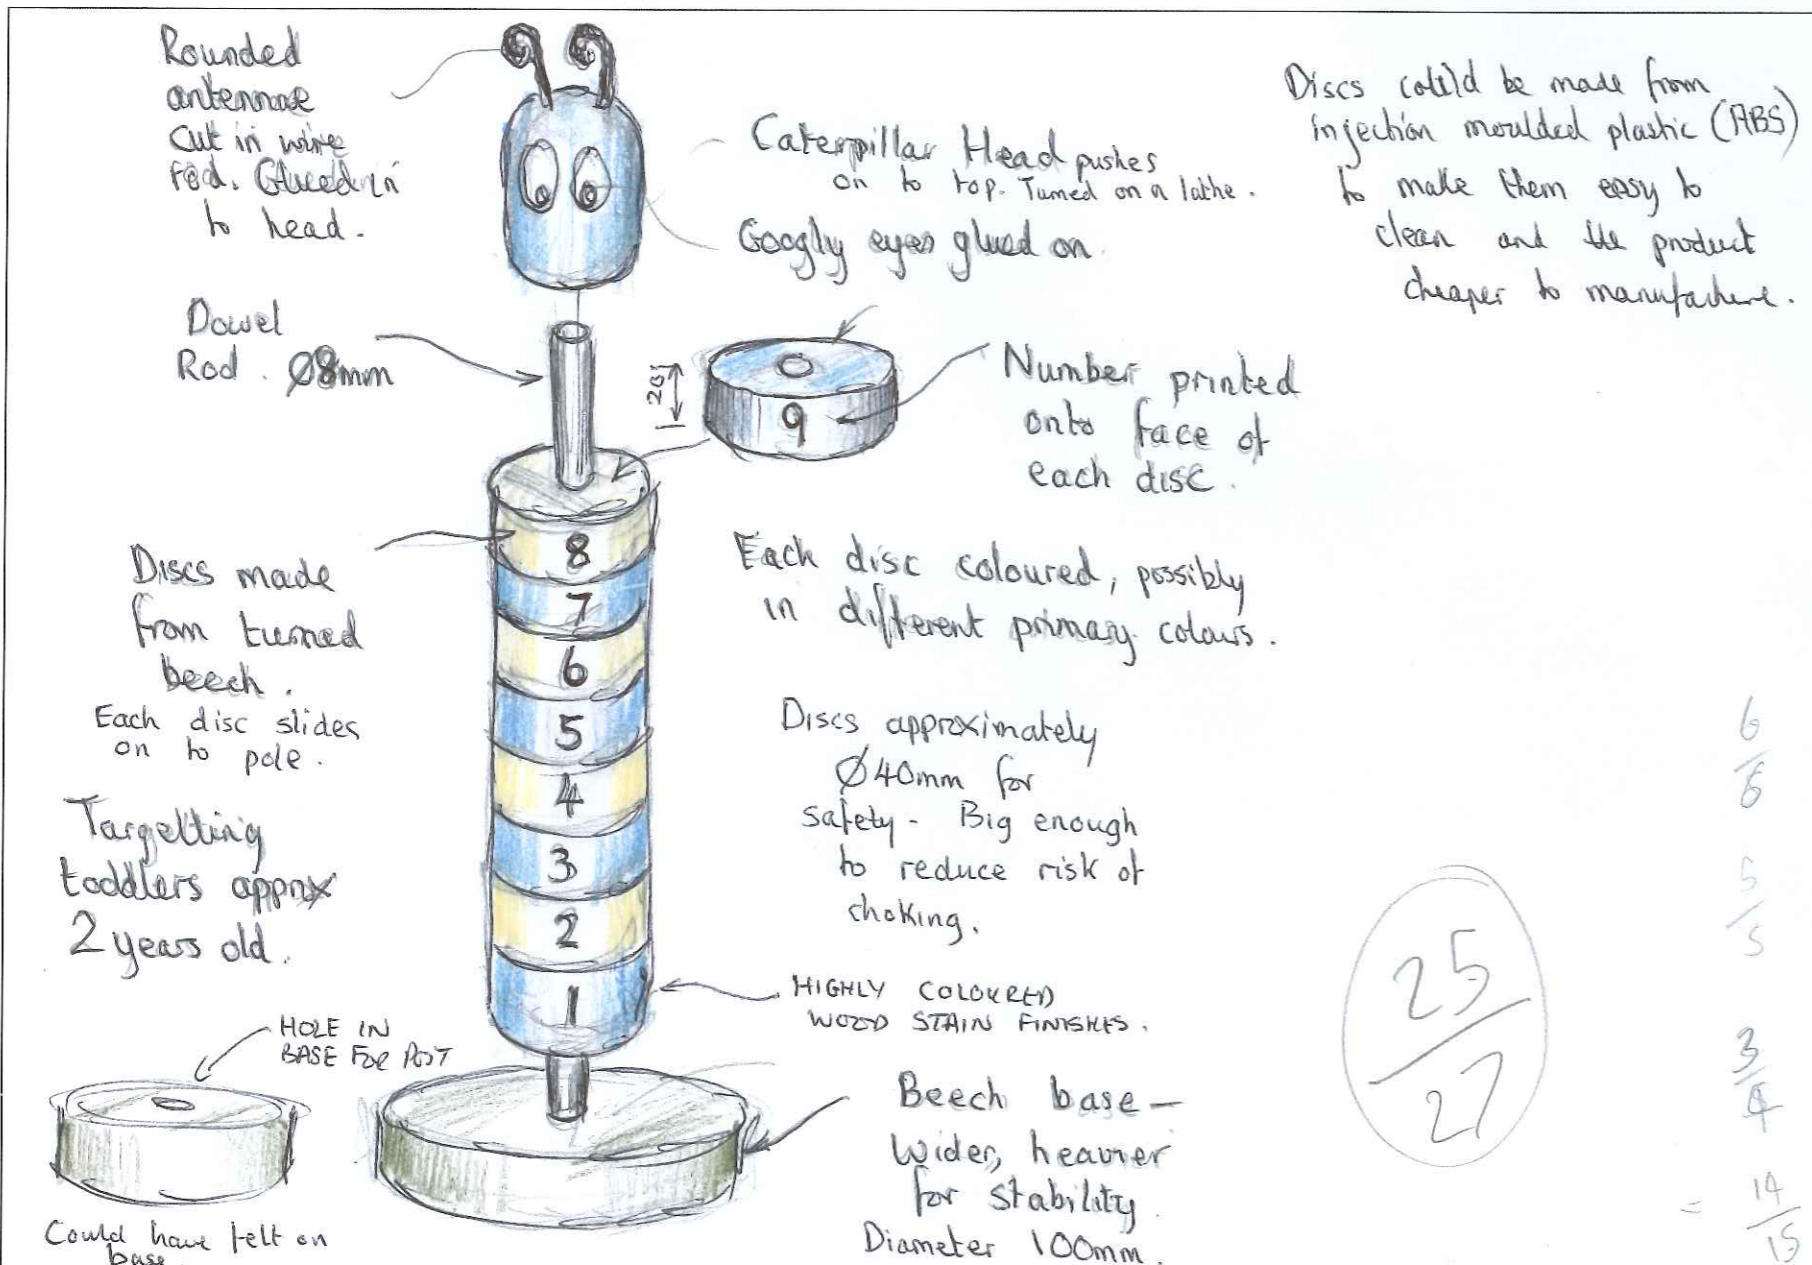 Rounded
antennae
Cut in wire
rod. Glued in
to head.
Caterpillar Head pushes
on to top. Turned on a lathe.
Googly eyes glued on.
Discs could be made from
injection moulded plastic (ABS)
to make them easy to
clean and the product
cheaper to manufacture.
Dowel
Rod. Ø8mm
20
9
Number printed
onto face of
each disc.
Discs made
from turned
beech.
Each disc slides
on to pole.
8
7
6
5
4
3
2
1
Each disc coloured, possibly
in different primary colours.
Discs approximately
Ø40mm for
safety - Big enough
to reduce risk of
choking.
Targetting
toddlers approx
2 years old.
HIGHLY COLOURED
WOOD STAIN FINISHES.
HOLE IN
BASE FOR POST
Could have felt on
base
Beech base -
Wider, heavier
for stability.
Diameter 100mm.
25
27
6
6
5
5
3
4
= 14
15